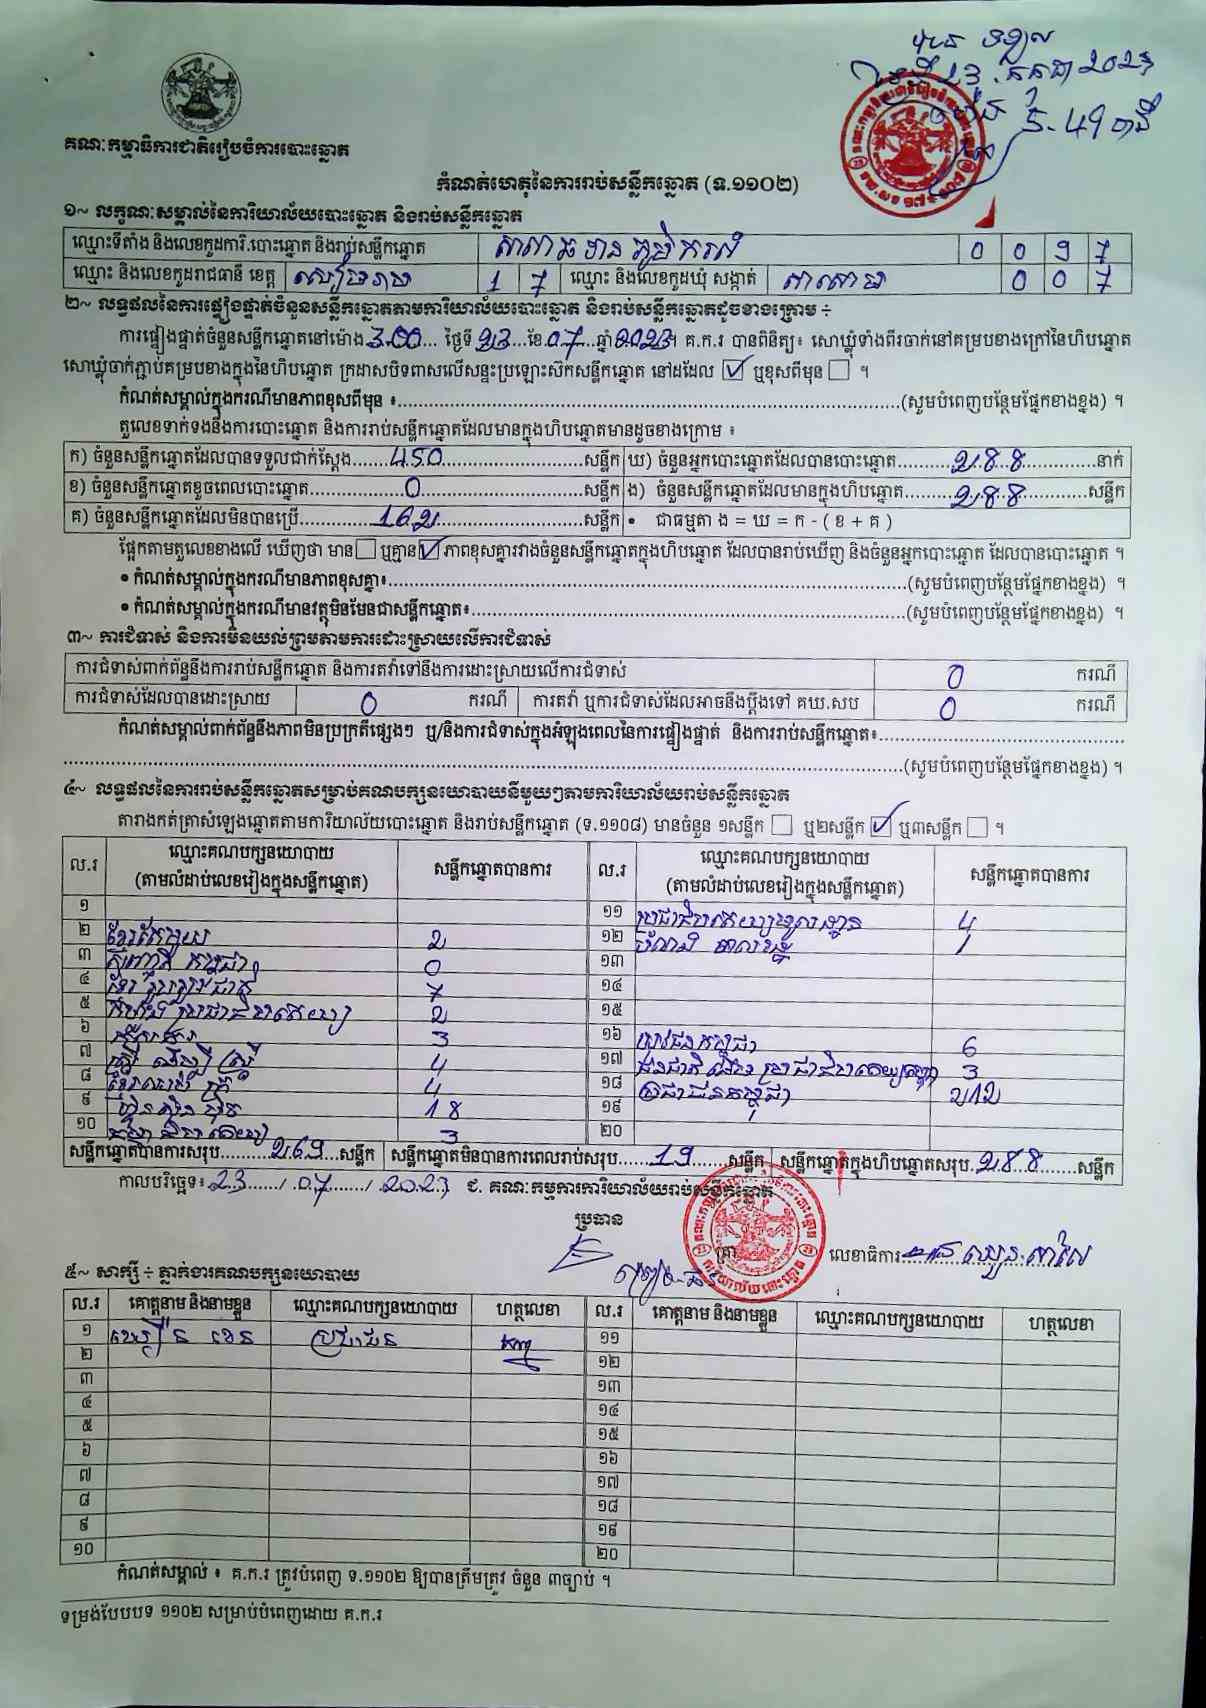 គណៈកម្មាធិការជាតិរៀបចំការបោះឆ្នោត
កំណត់ហេតុនៃការរាប់សន្លឹកឆ្នោត (ទ.១១០២)
១~ លក្ខណៈសម្គាល់នៃការិយាល័យបោះឆ្នោត និងរាប់សន្លឹកឆ្នោត
ឈ្មោះទីតាំង និងលេខកូដការិ.បោះឆ្នោត និងរាប់សន្លឹកឆ្នោត 0 0 9 7
ឈ្មោះ និងលេខកូដរាជធានី ខេត្ត សៀមរាប 1 7 ឈ្មោះ និងលេខកូដឃុំ សង្កាត់ 0 0 7
២~ លទ្ធផលនៃការផ្ទៀងផ្ទាត់ចំនួនសន្លឹកឆ្នោតតាមការិយាល័យបោះឆ្នោត និងរាប់សន្លឹកឆ្នោតដូចខាងក្រោម ÷
ការផ្ទៀងផ្ទាត់ចំនួនសន្លឹកឆ្នោតនៅម៉ោង 3.00 ថ្ងៃទី 23 ខែ 07 ឆ្នាំ 2023។ គ.ក.រ បានពិនិត្យ៖ សោឃ្លុំទាំងពីរចាក់នៅគម្របខាងក្រៅនៃហិបឆ្នោត
សោឃ្លុំចាក់ភ្ជាប់គម្របខាងក្នុងនៃហិបឆ្នោត ក្រដាសបិទពាសលើសន្ទះប្រឡោះស៊កសន្លឹកឆ្នោត នៅដដែល ☑ ឬខុសពីមុន ☐ ។
កំណត់សម្គាល់ក្នុងករណីមានភាពខុសពីមុន ៖ (សូមបំពេញបន្ថែមផ្នែកខាងខ្នង) ។
តួលេខទាក់ទងនឹងការបោះឆ្នោត និងការរាប់សន្លឹកឆ្នោតដែលមានក្នុងហិបឆ្នោតមានដូចខាងក្រោម ៖
ក) ចំនួនសន្លឹកឆ្នោតដែលបានទទួលជាក់ស្តែង 450 សន្លឹក ឃ) ចំនួនអ្នកបោះឆ្នោតដែលបានបោះឆ្នោត 288 នាក់
ខ) ចំនួនសន្លឹកឆ្នោតខូចពេលបោះឆ្នោត 0 សន្លឹក ង) ចំនួនសន្លឹកឆ្នោតដែលមានក្នុងហិបឆ្នោត 288 សន្លឹក
គ) ចំនួនសន្លឹកឆ្នោតដែលមិនបានប្រើ 162 សន្លឹក • ជាធម្មតា ង = ឃ = ក - ( ខ + គ )
ផ្អែកតាមតួលេខខាងលើ ឃើញថា មាន ☐ ឬគ្មាន ☑ ភាពខុសគ្នារវាងចំនួនសន្លឹកឆ្នោតក្នុងហិបឆ្នោត ដែលបានរាប់ឃើញ និងចំនួនអ្នកបោះឆ្នោត ដែលបានបោះឆ្នោត ។
• កំណត់សម្គាល់ក្នុងករណីមានភាពខុសគ្នា៖ (សូមបំពេញបន្ថែមផ្នែកខាងខ្នង) ។
• កំណត់សម្គាល់ក្នុងករណីមានវត្ថុមិនមែនជាសន្លឹកឆ្នោត៖ (សូមបំពេញបន្ថែមផ្នែកខាងខ្នង) ។
៣~ ការជំទាស់ និងការមិនយល់ព្រមតាមការដោះស្រាយលើការជំទាស់
ការជំទាស់ពាក់ព័ន្ធនឹងការរាប់សន្លឹកឆ្នោត និងការតវ៉ាទៅនឹងការដោះស្រាយលើការជំទាស់ 0 ករណី
ការជំទាស់ដែលបានដោះស្រាយ 0 ករណី ការតវ៉ា ឬការជំទាស់ដែលអាចនឹងប្តឹងទៅ គឃ.សប 0 ករណី
កំណត់សម្គាល់ពាក់ព័ន្ធនឹងភាពមិនប្រក្រតីផ្សេងៗ ឬ/និងការជំទាស់ក្នុងអំឡុងពេលនៃការផ្ទៀងផ្ទាត់ និងការរាប់សន្លឹកឆ្នោត៖
(សូមបំពេញបន្ថែមផ្នែកខាងខ្នង) ។
៤~ លទ្ធផលនៃការរាប់សន្លឹកឆ្នោតសម្រាប់គណបក្សនយោបាយនីមួយៗតាមការិយាល័យរាប់សន្លឹកឆ្នោត
តារាងកត់ត្រាសំឡេងឆ្នោតតាមការិយាល័យបោះឆ្នោត និងរាប់សន្លឹកឆ្នោត (ទ.១១០៨) មានចំនួន ១សន្លឹក ☐ ឬ២សន្លឹក ☑ ឬ៣សន្លឹក ☐ ។
ល.រ ឈ្មោះគណបក្សនយោបាយ (តាមលំដាប់លេខរៀងក្នុងសន្លឹកឆ្នោត) សន្លឹកឆ្នោតបានការ ល.រ ឈ្មោះគណបក្សនយោបាយ (តាមលំដាប់លេខរៀងក្នុងសន្លឹកឆ្នោត) សន្លឹកឆ្នោតបានការ
១ ១១ ប្រជាធិបតេយ្យមូលដ្ឋាន 4
២ ខ្មែរតែមួយ 2 ១២ 1
៣ 0 ១៣
៤ ខ្មែររួបរួមជាតិ 7 ១៤
៥ 2 ១៥
៦ 3 ១៦ យុវជនកម្ពុជា 6
៧ 4 ១៧ 3
៨ 4 ១៨ ប្រជាជនកម្ពុជា 212
៩ ហ្វ៊ុនស៊ិនប៉ិច 18 ១៩
១០ 3 ២០
សន្លឹកឆ្នោតបានការសរុប 269 សន្លឹក សន្លឹកឆ្នោតមិនបានការពេលរាប់សរុប 19 សន្លឹក សន្លឹកឆ្នោតក្នុងហិបឆ្នោតសរុប 288 សន្លឹក
កាលបរិច្ឆេទ៖ 23 / 07 / 2023 ជ. គណៈកម្មការការិយាល័យរាប់សន្លឹកឆ្នោត
ប្រធាន
ត្រា
លេខាធិការ
៥~ សាក្សី ÷ ភ្នាក់ងារគណបក្សនយោបាយ
ល.រ គោត្តនាម និងនាមខ្លួន ឈ្មោះគណបក្សនយោបាយ ហត្ថលេខា ល.រ គោត្តនាម និងនាមខ្លួន ឈ្មោះគណបក្សនយោបាយ ហត្ថលេខា
១ ប្រជាជន ១១
២ ១២
៣ ១៣
៤ ១៤
៥ ១៥
៦ ១៦
៧ ១៧
៨ ១៨
៩ ១៩
១០ ២០
កំណត់សម្គាល់ ៖ គ.ក.រ ត្រូវបំពេញ ទ.១១០២ ឱ្យបានត្រឹមត្រូវ ចំនួន ៣ច្បាប់ ។
ទម្រង់បែបបទ ១១០២ សម្រាប់បំពេញដោយ គ.ក.រ